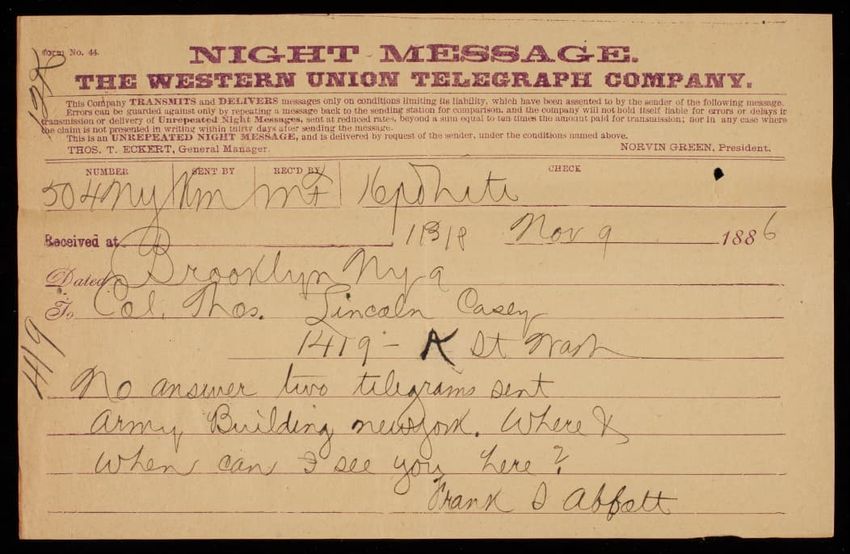 Form No. 44.
NIGHT MESSAGE.
THE WESTERN UNION TELEGRAPH COMPANY.
This Company TRANSMITS and DELIVERS messages only on conditions limiting its liability, which have been assented to by the sender of the following message.
Errors can be guarded against only by repeating a message back to the sending station for comparison, and the company will not hold itself liable for errors or delays in
transmission or delivery of Unrepeated Night Messages, sent at reduced rates, beyond a sum equal to ten times the amount paid for transmission; nor in any case where
the claim is not presented in writing within thirty days after sending the message.
This is an UNREPEATED NIGHT MESSAGE, and is delivered by request of the sender, under the conditions named above.
THOS. T. ECKERT, General Manager. NORVIN GREEN, President.
NUMBER SENT BY REC'D BY CHECK
504 Ny
Received at Nov 9 1886
Dated Brooklyn Ny 9
To Col. Thos. Lincoln Casey
1419 - K St Wash
No answer two telegrams sent
Army Building newyork. Where &
When can I see you here?
Frank D Abbott
419